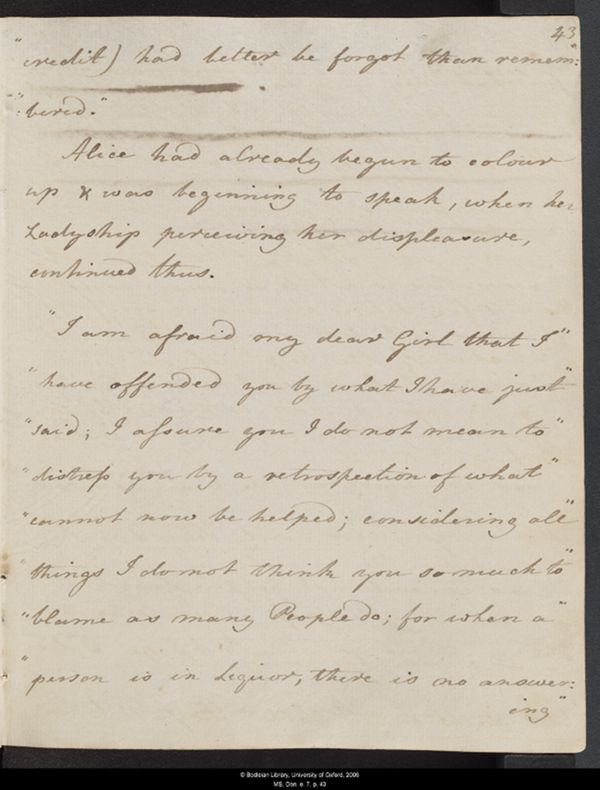 43
"credit) had better be forgot than remem":
":bered."
Alice had already begun to colour
up & was beginning to speak, when her
Ladyship perceiving her displeasure,
continued thus.
"I am afraid my dear Girl that I"
"have offended you by what I have just"
"said; I aſsure you I do not mean to"
"distreſs you by a retrospection of what"
"cannot now be helped; considering all"
"things I do not think you so much to"
"blame as many People do; for when a"
"person is in Liquor, there is no answer:
ing"
© Bodleian Library, University of Oxford, 2006
MS. Don. e. 7, p. 43